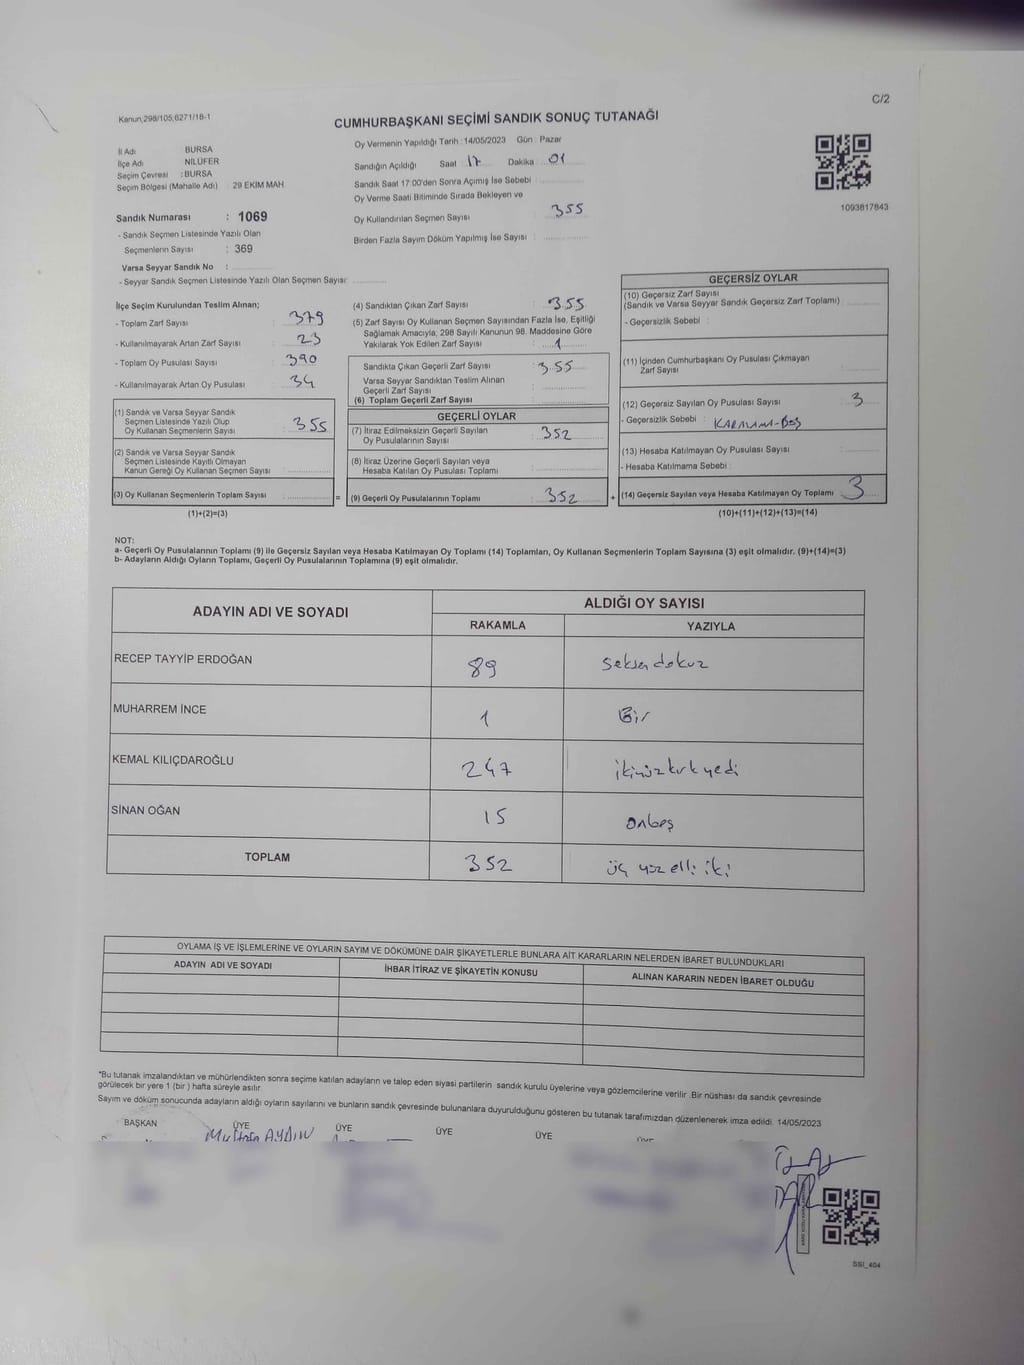 Kanun,298/105,6271/18-1
C/2
CUMHURBAŞKANI SEÇİMİ SANDIK SONUÇ TUTANAĞI
İl Adı BURSA
İlçe Adı NİLÜFER
Seçim Çevresi :BURSA
Seçim Bölgesi (Mahalle Adı) : 29 EKIM MAH
Sandık Numarası : 1069
- Sandık Seçmen Listesinde Yazılı Olan
Seçmenlerin Sayısı : 369
Varsa Seyyar Sandık No :
- Seyyar Sandık Seçmen Listesinde Yazılı Olan Seçmen Sayısı:
Oy Vermenin Yapıldığı Tarih : 14/05/2023 Gün : Pazar
Sandığın Açıldığı Saat 17 Dakika : 01
Sandık Saat 17:00'den Sonra Açımış İse Sebebi :
Oy Verme Saati Bitiminde Sırada Bekleyen ve
Oy Kullandırılan Seçmen Sayısı : 355
Birden Fazla Sayım Döküm Yapılmış İse Sayısı :
1093817843
İlçe Seçim Kurulundan Teslim Alınan;
- Toplam Zarf Sayısı : 379
- Kullanılmayarak Artan Zarf Sayısı : 23
- Toplam Oy Pusulası Sayısı : 390
- Kullanılmayarak Artan Oy Pusulası : 34
(1) Sandık ve Varsa Seyyar Sandık
Seçmen Listesinde Yazılı Olup
Oy Kullanan Seçmenlerin Sayısı : 355
(2) Sandık ve Varsa Seyyar Sandık
Seçmen Listesinde Kayıtlı Olmayan
Kanun Gereği Oy Kullanan Seçmen Sayısı :
(3) Oy Kullanan Seçmenlerin Toplam Sayısı :
(1)+(2)=(3)
=
(4) Sandıktan Çıkan Zarf Sayısı : 355
(5) Zarf Sayısı Oy Kullanan Seçmen Sayısından Fazla İse, Eşitliği
Sağlamak Amacıyla, 298 Sayılı Kanunun 98. Maddesine Göre
Yakılarak Yok Edilen Zarf Sayısı : 1
Sandıkta Çıkan Geçerli Zarf Sayısı : 355
Varsa Seyyar Sandıktan Teslim Alınan
Geçerli Zarf Sayısı :
(6) Toplam Geçerli Zarf Sayısı :
GEÇERLİ OYLAR
(7) İtiraz Edilmeksizin Geçerli Sayılan
Oy Pusulalarının Sayısı : 352
(8) İtiraz Üzerine Geçerli Sayılan veya
Hesaba Katılan Oy Pusulası Toplamı :
(9) Geçerli Oy Pusulalarının Toplamı : 352
+
GEÇERSİZ OYLAR
(10) Geçersiz Zarf Sayısı
(Sandık ve Varsa Seyyar Sandık Geçersiz Zarf Toplamı) :
- Geçersizlik Sebebi :
(11) İçinden Cumhurbaşkanı Oy Pusulası Çıkmayan
Zarf Sayısı :
(12) Geçersiz Sayılan Oy Pusulası Sayısı : 3
- Geçersizlik Sebebi :
(13) Hesaba Katılmayan Oy Pusulası Sayısı :
- Hesaba Katılmama Sebebi :
(14) Geçersiz Sayılan veya Hesaba Katılmayan Oy Toplamı : 3
(10)+(11)+(12)+(13)=(14)
NOT:
a- Geçerli Oy Pusulalarının Toplamı (9) ile Geçersiz Sayılan veya Hesaba Katılmayan Oy Toplamı (14) Toplamları, Oy Kullanan Seçmenlerin Toplam Sayısına (3) eşit olmalıdır. (9)+(14)=(3)
b- Adayların Aldığı Oyların Toplamı, Geçerli Oy Pusulalarının Toplamına (9) eşit olmalıdır.
ADAYIN ADI VE SOYADI ALDIĞI OY SAYISI
RAKAMLA YAZIYLA
RECEP TAYYİP ERDOĞAN 89 seksendokuz
MUHARREM İNCE 1 Bir
KEMAL KILIÇDAROĞLU 247 ikiyüzkırkyedi
SİNAN OĞAN 15 onbeş
TOPLAM 352 üç yüz elli iki
OYLAMA İŞ VE İŞLEMLERİNE VE OYLARIN SAYIM VE DÖKÜMÜNE DAİR ŞİKAYETLERLE BUNLARA AİT KARARLARIN NELERDEN İBARET BULUNDUKLARI
ADAYIN ADI VE SOYADI İHBAR İTİRAZ VE ŞİKAYETİN KONUSU ALINAN KARARIN NEDEN İBARET OLDUĞU
*Bu tutanak imzalandıktan ve mühürlendikten sonra seçime katılan adayların ve talep eden siyasi partilerin sandık kurulu üyelerine veya gözlemcilerine verilir .Bir nüshası da sandık çevresinde
görülecek bir yere 1 (bir ) hafta süreyle asılır.
Sayım ve döküm sonucunda adayların aldığı oyların sayılarını ve bunların sandık çevresinde bulunanlara duyurulduğunu gösteren bu tutanak tarafımızdan düzenlenerek imza edildi. 14/05/2023
BAŞKAN ÜYE ÜYE ÜYE ÜYE
Mustafa AYDIN
SSI_404